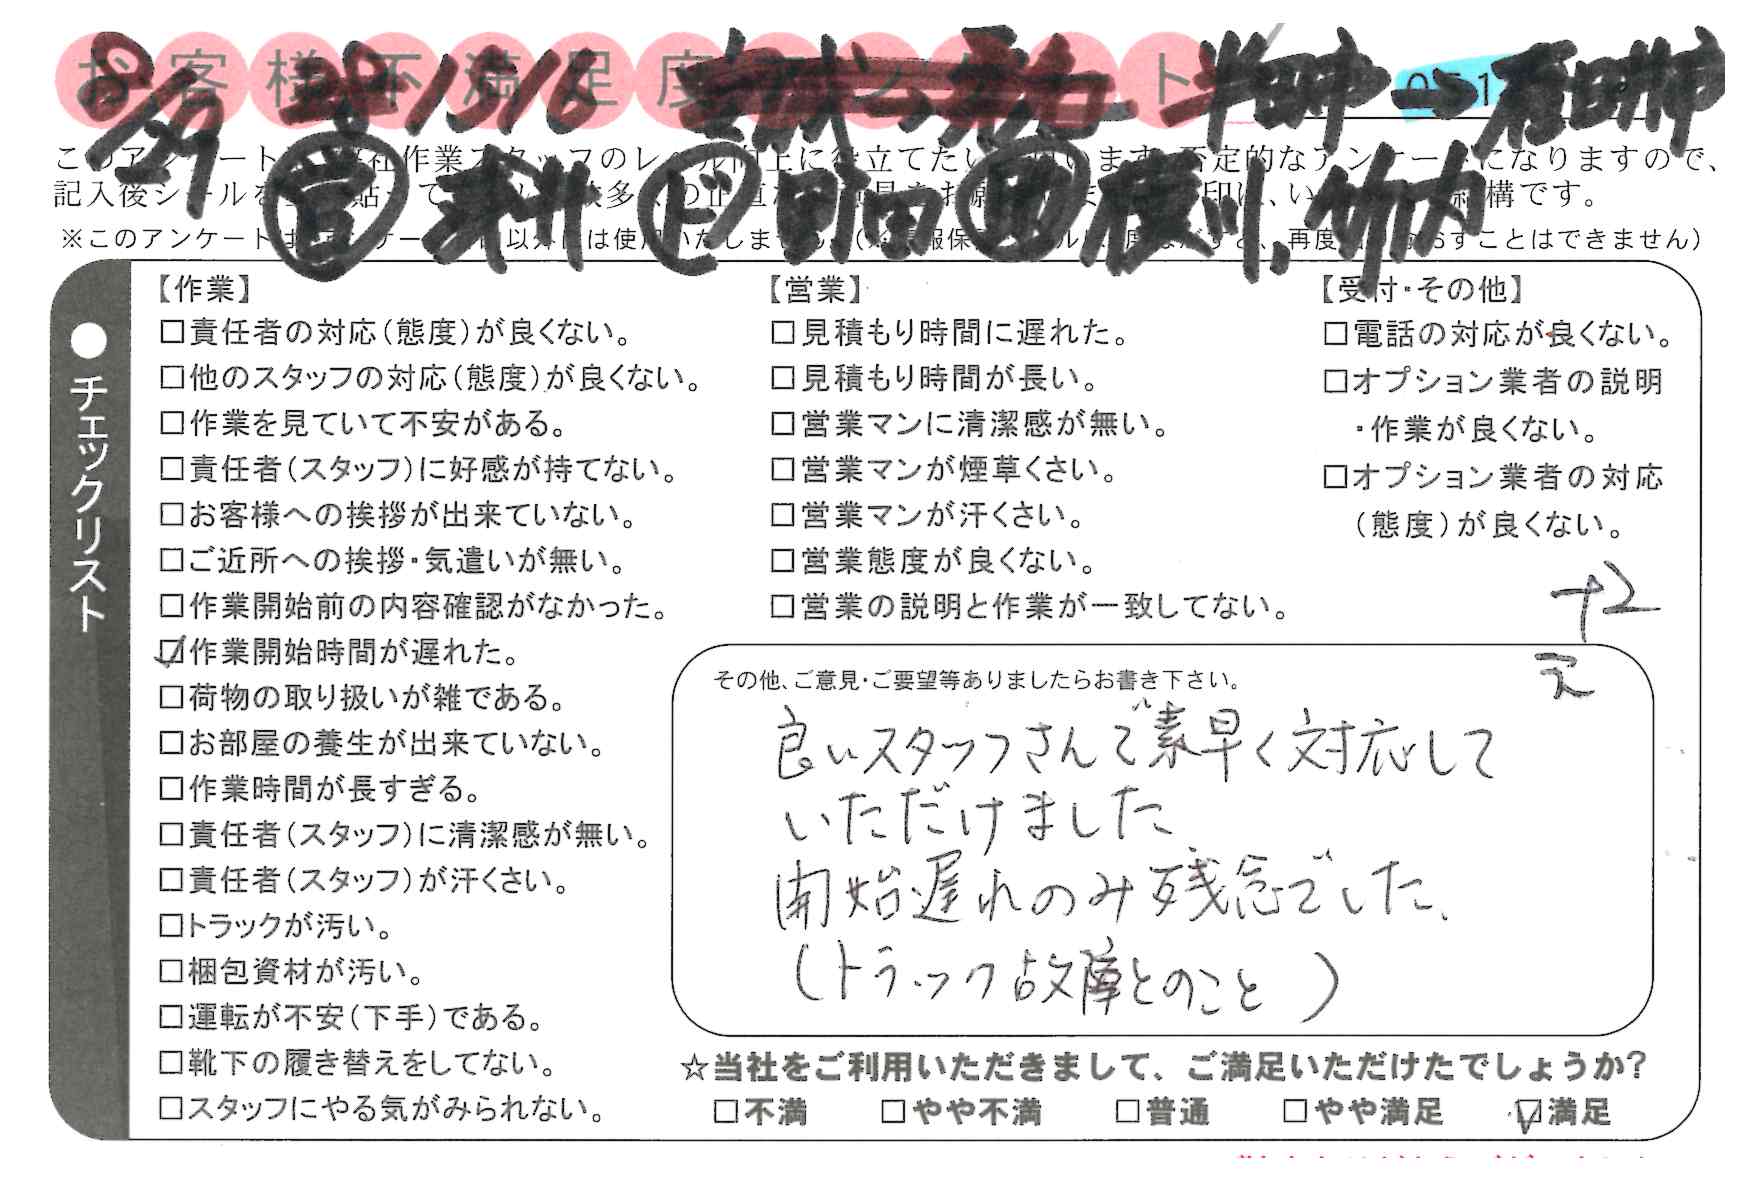 お客様不満足度アンケート
8/29 半田市→半田市
このアンケートは、当社作業スタッフのレベル向上に役立てたいと思います。否定的なアンケートになりますので、
営 ド 町田 横川、竹内
【作業】
□責任者の対応(態度)が良くない。
□他のスタッフの対応(態度)が良くない。
□作業を見ていて不安がある。
□責任者(スタッフ)に好感が持てない。
□お客様への挨拶が出来ていない。
□ご近所への挨拶・気遣いが無い。
□作業開始前の内容確認がなかった。
☑作業開始時間が遅れた。
□荷物の取り扱いが雑である。
□お部屋の養生が出来ていない。
□作業時間が長すぎる。
□責任者(スタッフ)に清潔感が無い。
□責任者(スタッフ)が汗くさい。
□トラックが汚い。
□梱包資材が汚い。
□運転が不安(下手)である。
□靴下の履き替えをしてない。
□スタッフにやる気がみられない。
【営業】
□見積もり時間に遅れた。
□見積もり時間が長い。
□営業マンに清潔感が無い。
□営業マンが煙草くさい。
□営業マンが汗くさい。
□営業態度が良くない。
□営業の説明と作業が一致してない。
【受付・その他】
□電話の対応が良くない。
□オプション業者の説明
・作業が良くない。
□オプション業者の対応
(態度)が良くない。
+2
●チェックリスト
その他、ご意見・ご要望等ありましたらお書き下さい。
良いスタッフさんで素早く対応して
いただけました
開始遅れのみ残念でした、
(トラック故障とのこと)
☆当社をご利用いただきまして、ご満足いただけたでしょうか?
□不満 □やや不満 □普通 □やや満足 ☑満足